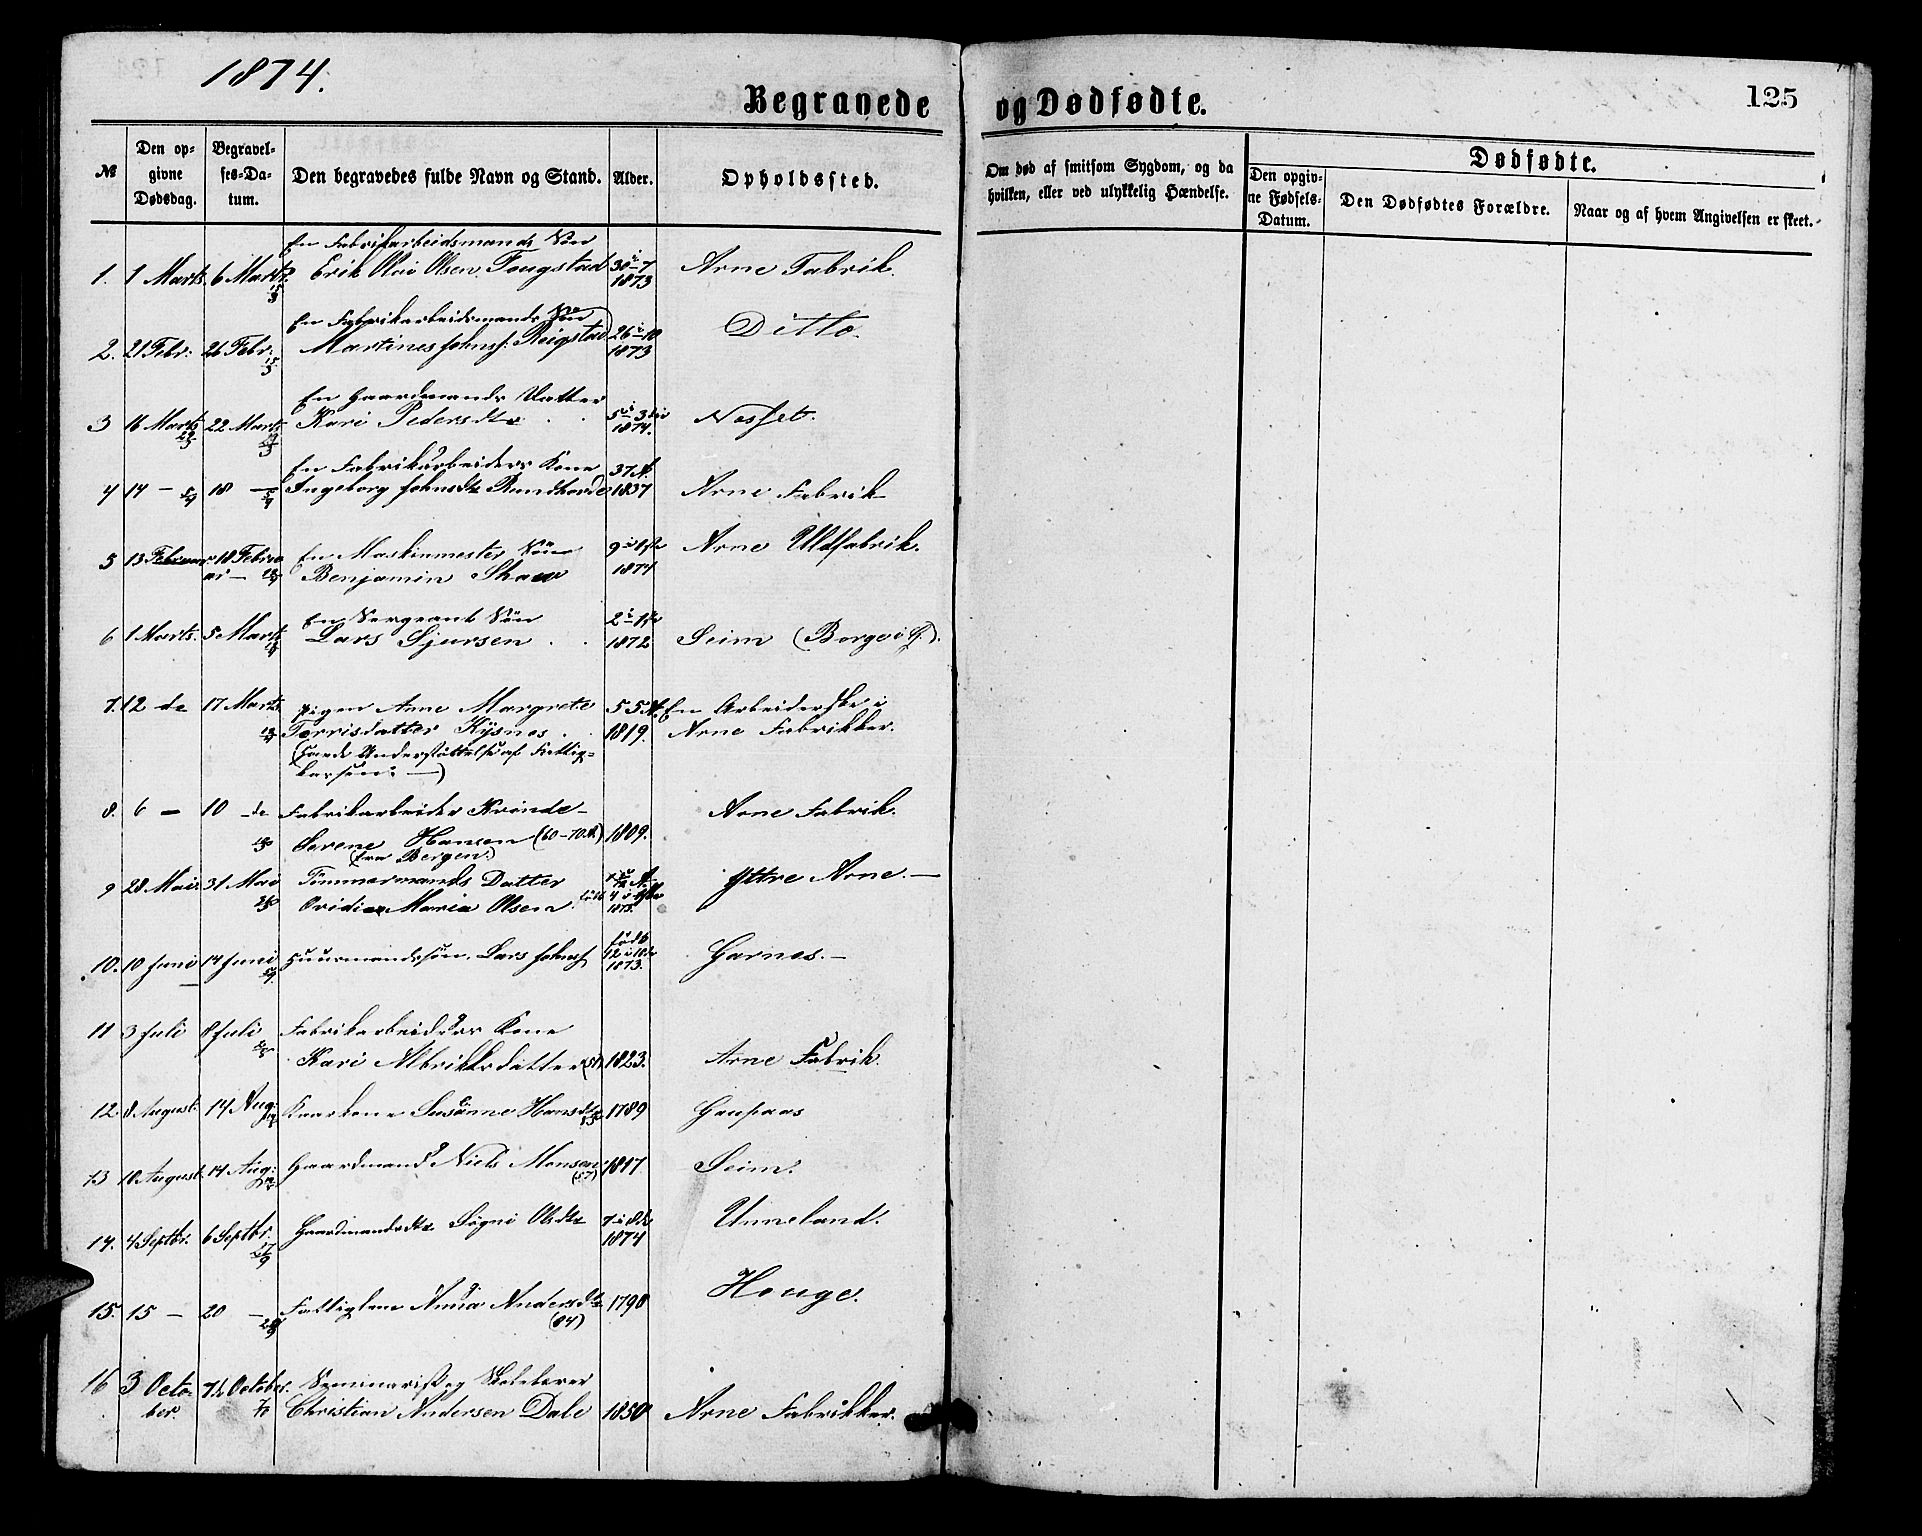 1874.
Begravede og Dødfødte.
125
№
Den opgivne Dødsdag.
Begravelses-Datum.
Den begravedes fulde Navn og Stand.
Alder.
Opholdssted.
Om død af smitsom Sygdom, og da hvilken, eller ved ulykkelig Hændelse.
Dødfødte.
Den opgivne Fødsels-Datum.
Den Dødfødtes Forældre.
Naar og af hvem Angivelsen er skeet.
En Fabrikarbeidsmands Søn
1. 1 Marts. 6 Marts Erik Olai Olsen Tougstad 30 i 7 1873 Arne Fabrik.
En Fabrikarbeidsmands Søn
2. 21 Febr: 26 Febr: Martines Johnss: Reigstad 26 i 10 1873 Ditto.
En Gaardmands Datter
3 16 Marts 22 Marts Kari Pedersdtr 5 i 3 1874. Nesset.
En Fabrikarbeiders Kone 37 A.
4 14 — 18 — Ingeborg Johnsdtr Rundhovde 1837 Arne Fabrik
5 13 Februar 18 Februar — En Maskinmester Søn
Benjamin Shaw 1874 Arne Uldfabrik.
En Sergeant Søn
6 1 Marts. 5 Marts Lars Sjursen 1872 Seim (Borge i H.).
7. 12 de 17 Marts Pigen Anne Margrete 55 A. En Arbeiderske i
Torrisdatter Kysnes. 1819. Arne Fabrikker.
(Havde Understøttelse af Fattigkassen. —)
8. 6 — 10 de Fabrikarbeider Kvinde Arne Fabrik.
Serene Hansen (60-70 A.) 1809.
(fra Bergen.)
9 28 Mai 31 Mai Tømmermands Datter Yttre Arne. —
Ovidia Maria Olsen. født 4 i 1873.
10. 10 Juni 14 Juni Huusmandssøn. Lars Johnss født 12 i 10de 1873. Garnes. —
11 3 Juli 8 Juli Fabrikarbeiders Kone
Kari Albrikksdatter (51) 1823. Arne Fabrik.
12. 8 August. 14 Aug: Kaarkone Susanne Hansdtr 85 1789 Gaupaas
13 10 August. 14 Aug: Gaardmand Niels Monsen (57) 1817. Seim.
14. 4 Septbr. 6 Septbr. Gaardmandsdtr Signi Olsdtr 7 i 8de 1874 Unneland.
15. 15 — 20 — Fattiglem Anna Andersdtr (84) 1790 Houge.
16 3 October. 7de October. Seminarist og Skolelærer
Christian Andersen Dale 1850 Arne Fabrikker.